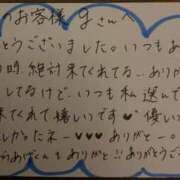 のお客様 gさんへ
とうございました。いつもあ
時 絶対来てくれてる…ありが
してるけど、いつも私選んで
来てくれて嬉しいです♡優しい
しかったネー♥♥♥ありがとー。
うあげくんもありがと!!ありがとうござ